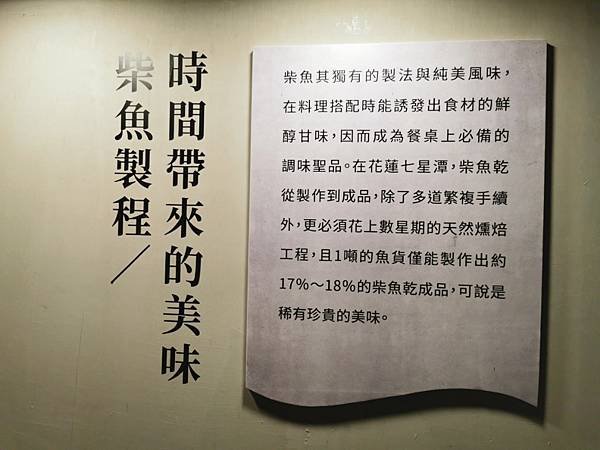 時間帶來的美味
柴魚製程／
柴魚其獨有的製法與純美風味，
在料理搭配時能誘發出食材的鮮
醇甘味，因而成為餐桌上必備的
調味聖品。在花蓮七星潭，柴魚乾
從製作到成品，除了多道繁複手續
外，更必須花上數星期的天然燻焙
工程，且1噸的魚貨僅能製作出約
17%～18%的柴魚乾成品，可說是
稀有珍貴的美味。